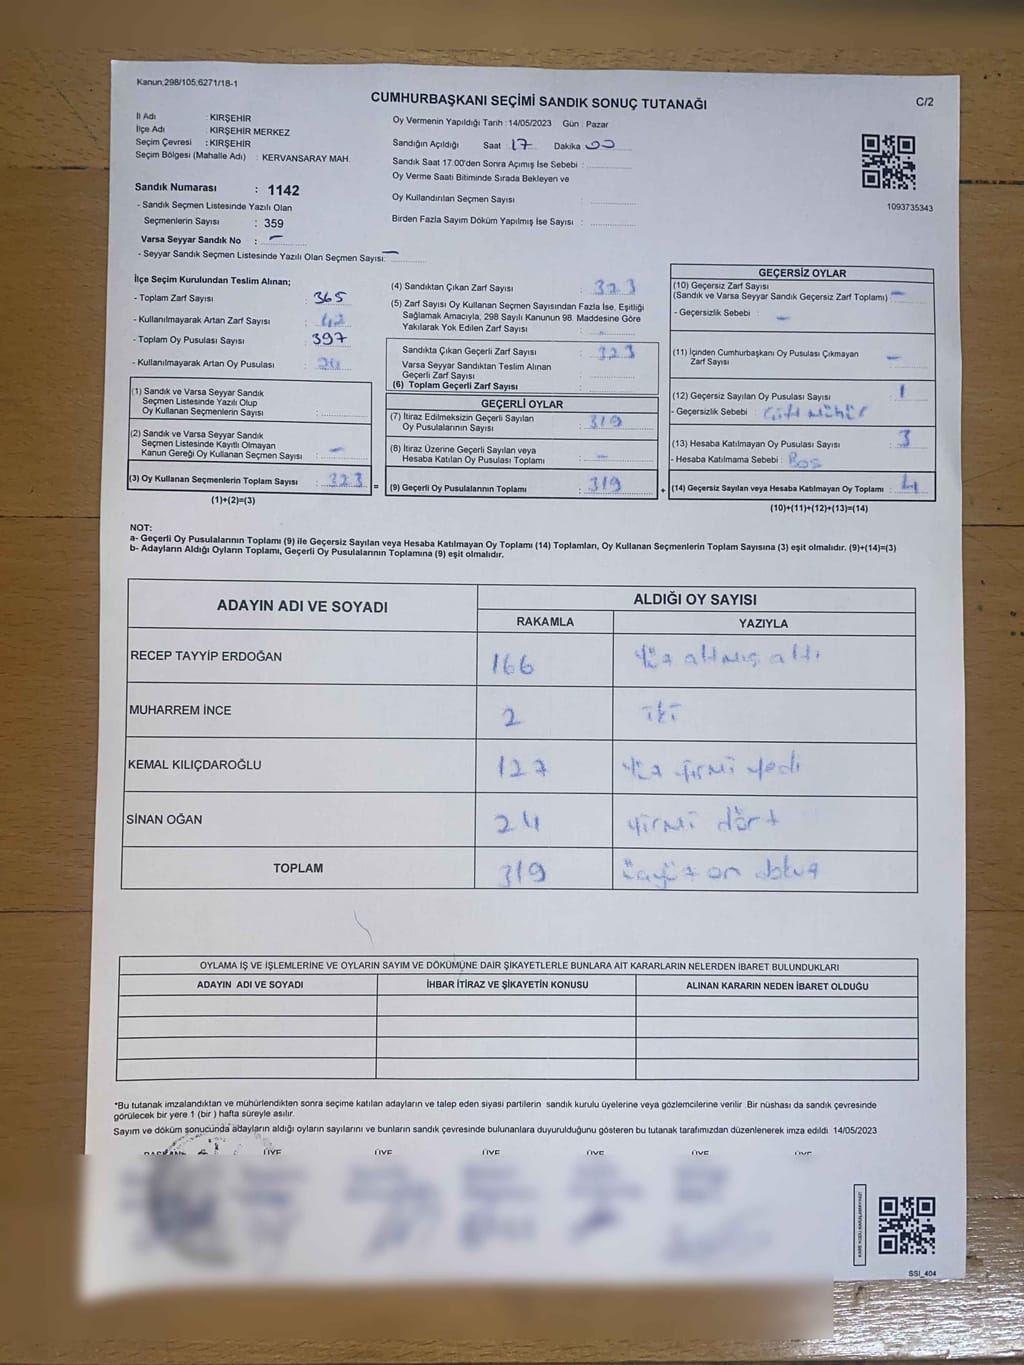 Kanun:298/105;6271/18-1
CUMHURBAŞKANI SEÇİMİ SANDIK SONUÇ TUTANAĞI
C/2
İl Adı : KIRŞEHİR
İlçe Adı : KIRŞEHİR MERKEZ
Seçim Çevresi : KIRŞEHİR
Seçim Bölgesi (Mahalle Adı) : KERVANSARAY MAH.
Sandık Numarası : 1142
- Sandık Seçmen Listesinde Yazılı Olan
Seçmenlerin Sayısı : 359
Varsa Seyyar Sandık No : -
- Seyyar Sandık Seçmen Listesinde Yazılı Olan Seçmen Sayısı: -
Oy Vermenin Yapıldığı Tarih :14/05/2023 Gün : Pazar
Sandığın Açıldığı Saat 17 Dakika 00
Sandık Saat 17:00'den Sonra Açımış İse Sebebi :
Oy Verme Saati Bitiminde Sırada Bekleyen ve
Oy Kullandırılan Seçmen Sayısı :
Birden Fazla Sayım Döküm Yapılmış İse Sayısı :
1093735343
İlçe Seçim Kurulundan Teslim Alınan;
- Toplam Zarf Sayısı : 365
- Kullanılmayarak Artan Zarf Sayısı : 42
- Toplam Oy Pusulası Sayısı : 397
- Kullanılmayarak Artan Oy Pusulası :
(1) Sandık ve Varsa Seyyar Sandık
Seçmen Listesinde Yazılı Olup
Oy Kullanan Seçmenlerin Sayısı :
(2) Sandık ve Varsa Seyyar Sandık
Seçmen Listesinde Kayıtlı Olmayan
Kanun Gereği Oy Kullanan Seçmen Sayısı : -
(3) Oy Kullanan Seçmenlerin Toplam Sayısı : 323 =
(1)+(2)=(3)
(4) Sandıktan Çıkan Zarf Sayısı : 323
(5) Zarf Sayısı Oy Kullanan Seçmen Sayısından Fazla İse, Eşitliği
Sağlamak Amacıyla, 298 Sayılı Kanunun 98. Maddesine Göre
Yakılarak Yok Edilen Zarf Sayısı : -
Sandıkta Çıkan Geçerli Zarf Sayısı : 323
Varsa Seyyar Sandıktan Teslim Alınan
Geçerli Zarf Sayısı :
(6) Toplam Geçerli Zarf Sayısı :
GEÇERLİ OYLAR
(7) İtiraz Edilmeksizin Geçerli Sayılan
Oy Pusulalarının Sayısı : 319
(8) İtiraz Üzerine Geçerli Sayılan veya
Hesaba Katılan Oy Pusulası Toplamı : -
(9) Geçerli Oy Pusulalarının Toplamı : 319 +
GEÇERSİZ OYLAR
(10) Geçersiz Zarf Sayısı
(Sandık ve Varsa Seyyar Sandık Geçersiz Zarf Toplamı) : -
- Geçersizlik Sebebi : -
(11) İçinden Cumhurbaşkanı Oy Pusulası Çıkmayan
Zarf Sayısı : -
(12) Geçersiz Sayılan Oy Pusulası Sayısı : 1
- Geçersizlik Sebebi : Çift Mühür
(13) Hesaba Katılmayan Oy Pusulası Sayısı : 3
- Hesaba Katılmama Sebebi : Boş
(14) Geçersiz Sayılan veya Hesaba Katılmayan Oy Toplamı : 4
(10)+(11)+(12)+(13)=(14)
NOT:
a- Geçerli Oy Pusulalarının Toplamı (9) ile Geçersiz Sayılan veya Hesaba Katılmayan Oy Toplamı (14) Toplamları, Oy Kullanan Seçmenlerin Toplam Sayısına (3) eşit olmalıdır. (9)+(14)=(3)
b- Adayların Aldığı Oyların Toplamı, Geçerli Oy Pusulalarının Toplamına (9) eşit olmalıdır.
ADAYIN ADI VE SOYADI ALDIĞI OY SAYISI
RAKAMLA YAZIYLA
RECEP TAYYİP ERDOĞAN 166 Yüz altmış altı
MUHARREM İNCE 2 iki
KEMAL KILIÇDAROĞLU 127 Yüz yirmi yedi
SİNAN OĞAN 24 yirmi dört
TOPLAM 319 üçyüz on dokuz
OYLAMA İŞ VE İŞLEMLERİNE VE OYLARIN SAYIM VE DÖKÜMÜNE DAİR ŞİKAYETLERLE BUNLARA AİT KARARLARIN NELERDEN İBARET BULUNDUKLARI
ADAYIN ADI VE SOYADI İHBAR İTİRAZ VE ŞİKAYETİN KONUSU ALINAN KARARIN NEDEN İBARET OLDUĞU
*Bu tutanak imzalandıktan ve mühürlendikten sonra seçime katılan adayların ve talep eden siyasi partilerin sandık kurulu üyelerine veya gözlemcilerine verilir. Bir nüshası da sandık çevresinde
görülecek bir yere 1 (bir ) hafta süreyle asılır.
Sayım ve döküm sonucunda adayların aldığı oyların sayılarını ve bunların sandık çevresinde bulunanlara duyurulduğunu gösteren bu tutanak tarafımızdan düzenlenerek imza edildi. 14/05/2023
BAŞKAN ÜYE ÜYE ÜYE ÜYE ÜYE ÜYE
SSI_404